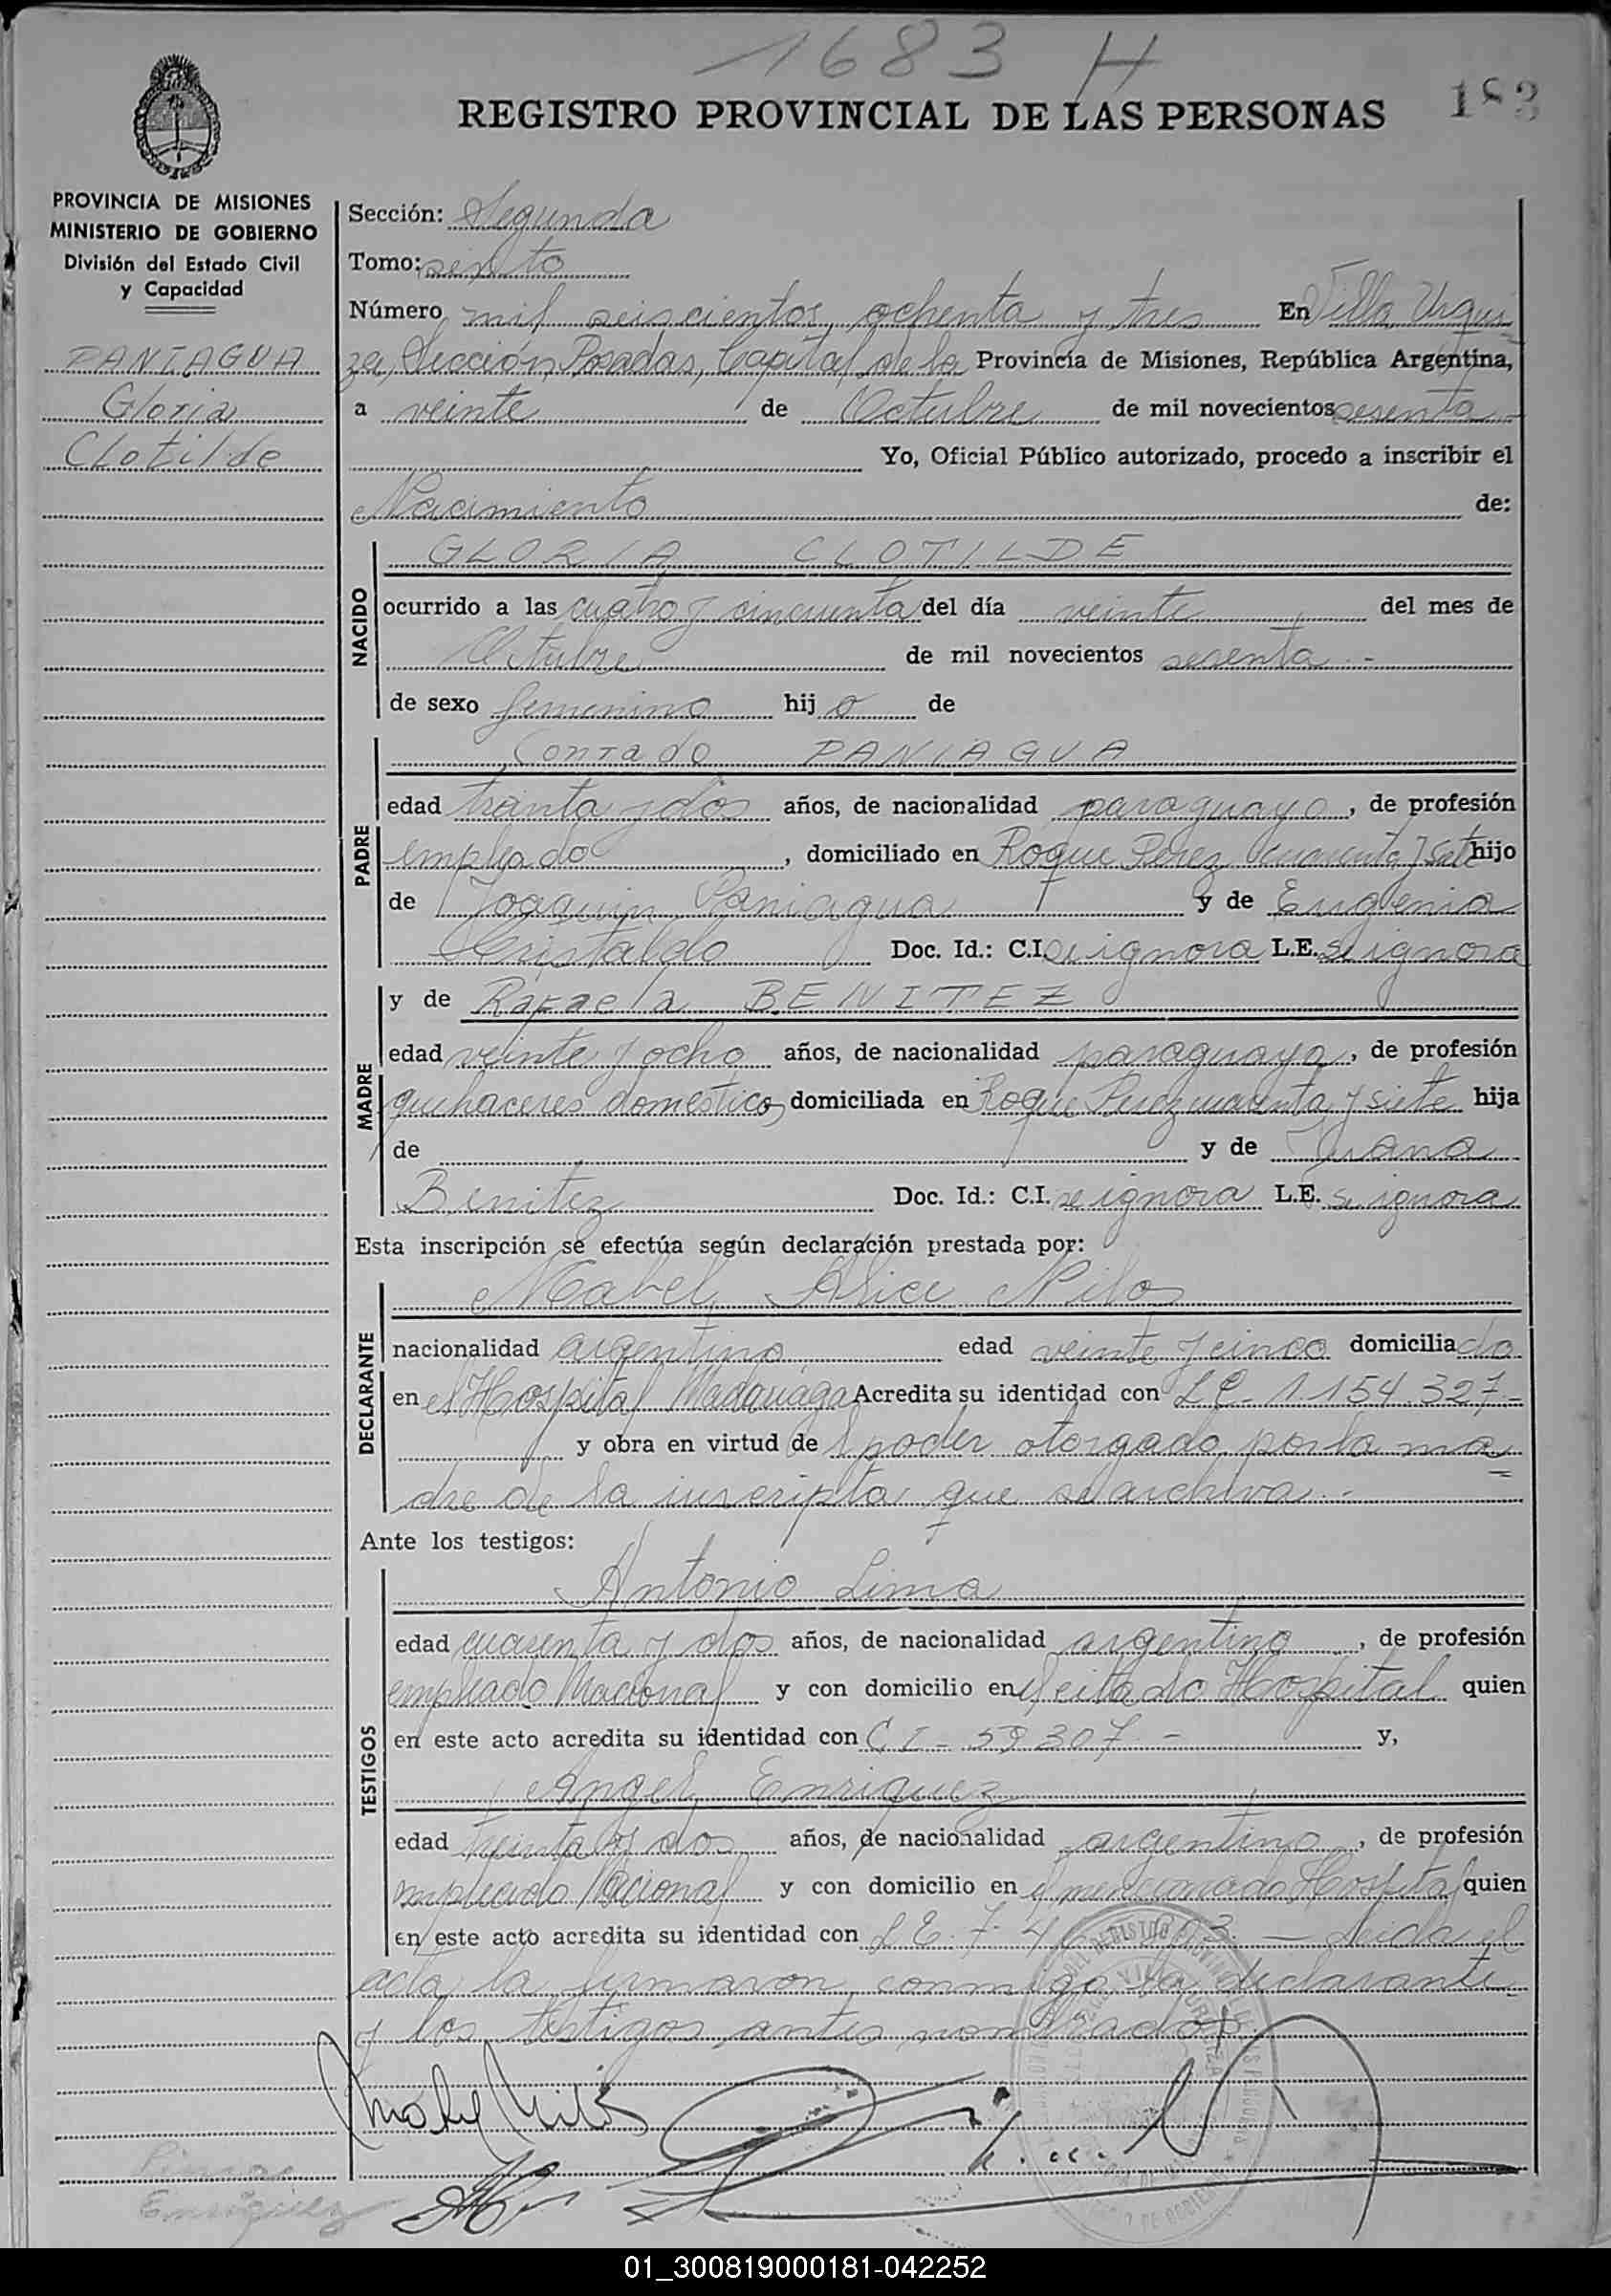 1683 H
REGISTRO PROVINCIAL DE LAS PERSONAS
PROVINCIA DE MISIONES
MINISTERIO DE GOBIERNO
División del Estado Civil
y Capacidad
PANIAGUA
Gloria
Clotilde
Sección: Segunda
Tomo: sexto
Número mil seiscientos, ochenta y tres En Villa Urqui
za, Sección Posadas, Capital de la Provincia de Misiones, República Argentina,
a veinte de Octubre de mil novecientos sesenta -
Yo, Oficial Público autorizado, procedo a inscribir el
Nacimiento de:
NACIDO
GLORIA CLOTILDE
ocurrido a las cuatro y cincuenta del día veinte del mes de
Octubre de mil novecientos sesenta . -
de sexo femenino hij o de
PADRE
Conrado PANIAGUA
edad treinta y dos años, de nacionalidad paraguayo, de profesión
empleado, domiciliado en Roque Perez cuarenta y siete hijo
de Joaquin Paniagua y de Eugenia
Cristaldo Doc. Id.: C.I. se ignora L.E. se ignora
MADRE
y de Rafaela BENITEZ
edad veinte y ocho años, de nacionalidad paraguaya, de profesión
quehaceres domésticos domiciliada en Roque Perez cuarenta y siete hija
de y de Juana
Benitez Doc. Id.: C.I. se ignora L.E. se ignora
Esta inscripción se efectúa según declaración prestada por:
DECLARANTE
Mabel Alice Nilos
nacionalidad argentina edad veinte y cinco domiciliada
en el Hospital Madariaga Acredita su identidad con L C - 1.154.327 -
y obra en virtud del poder otorgado por la ma
dre de la inscripta que se archiva . -
Ante los testigos:
TESTIGOS
Antonio Lima
edad cuarenta y dos años, de nacionalidad argentino, de profesión
empleado Nacional y con domicilio en el citado Hospital quien
en este acto acredita su identidad con C I - 59307 - y,
Angel Enriquez
edad treinta y dos años, de nacionalidad argentino, de profesión
empleado Nacional y con domicilio en el mencionado Hospital quien
en este acto acredita su identidad con L E. 7.4 - Leida el
acta la firmaron conmigo la declarante
y los testigos antes nombrados
Enriquez
01_300819000181-042252